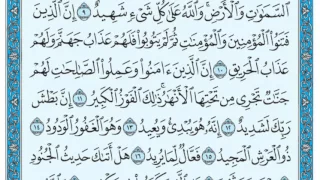 السَّمَٰوَٰتِ وَالْأَرْضِ وَاللَّهُ عَلَىٰ كُلِّ شَيْءٍ شَهِيدٌ ٩ إِنَّ الَّذِينَ
فَتَنُوا الْمُؤْمِنِينَ وَالْمُؤْمِنَٰتِ ثُمَّ لَمْ يَتُوبُوا فَلَهُمْ عَذَابُ جَهَنَّمَ وَلَهُمْ
عَذَابُ الْحَرِيقِ ١٠ إِنَّ الَّذِينَ ءَامَنُوا وَعَمِلُوا الصَّٰلِحَٰتِ لَهُمْ
جَنَّٰتٌ تَجْرِي مِن تَحْتِهَا الْأَنْهَٰرُ ذَٰلِكَ الْفَوْزُ الْكَبِيرُ ١١ إِنَّ بَطْشَ
رَبِّكَ لَشَدِيدٌ ١٢ إِنَّهُ هُوَ يُبْدِئُ وَيُعِيدُ ١٣ وَهُوَ الْغَفُورُ الْوَدُودُ ١٤
ذُو الْعَرْشِ الْمَجِيدُ ١٥ فَعَّالٌ لِّمَا يُرِيدُ ١٦ هَلْ أَتَىٰكَ حَدِيثُ الْجُنُودِ